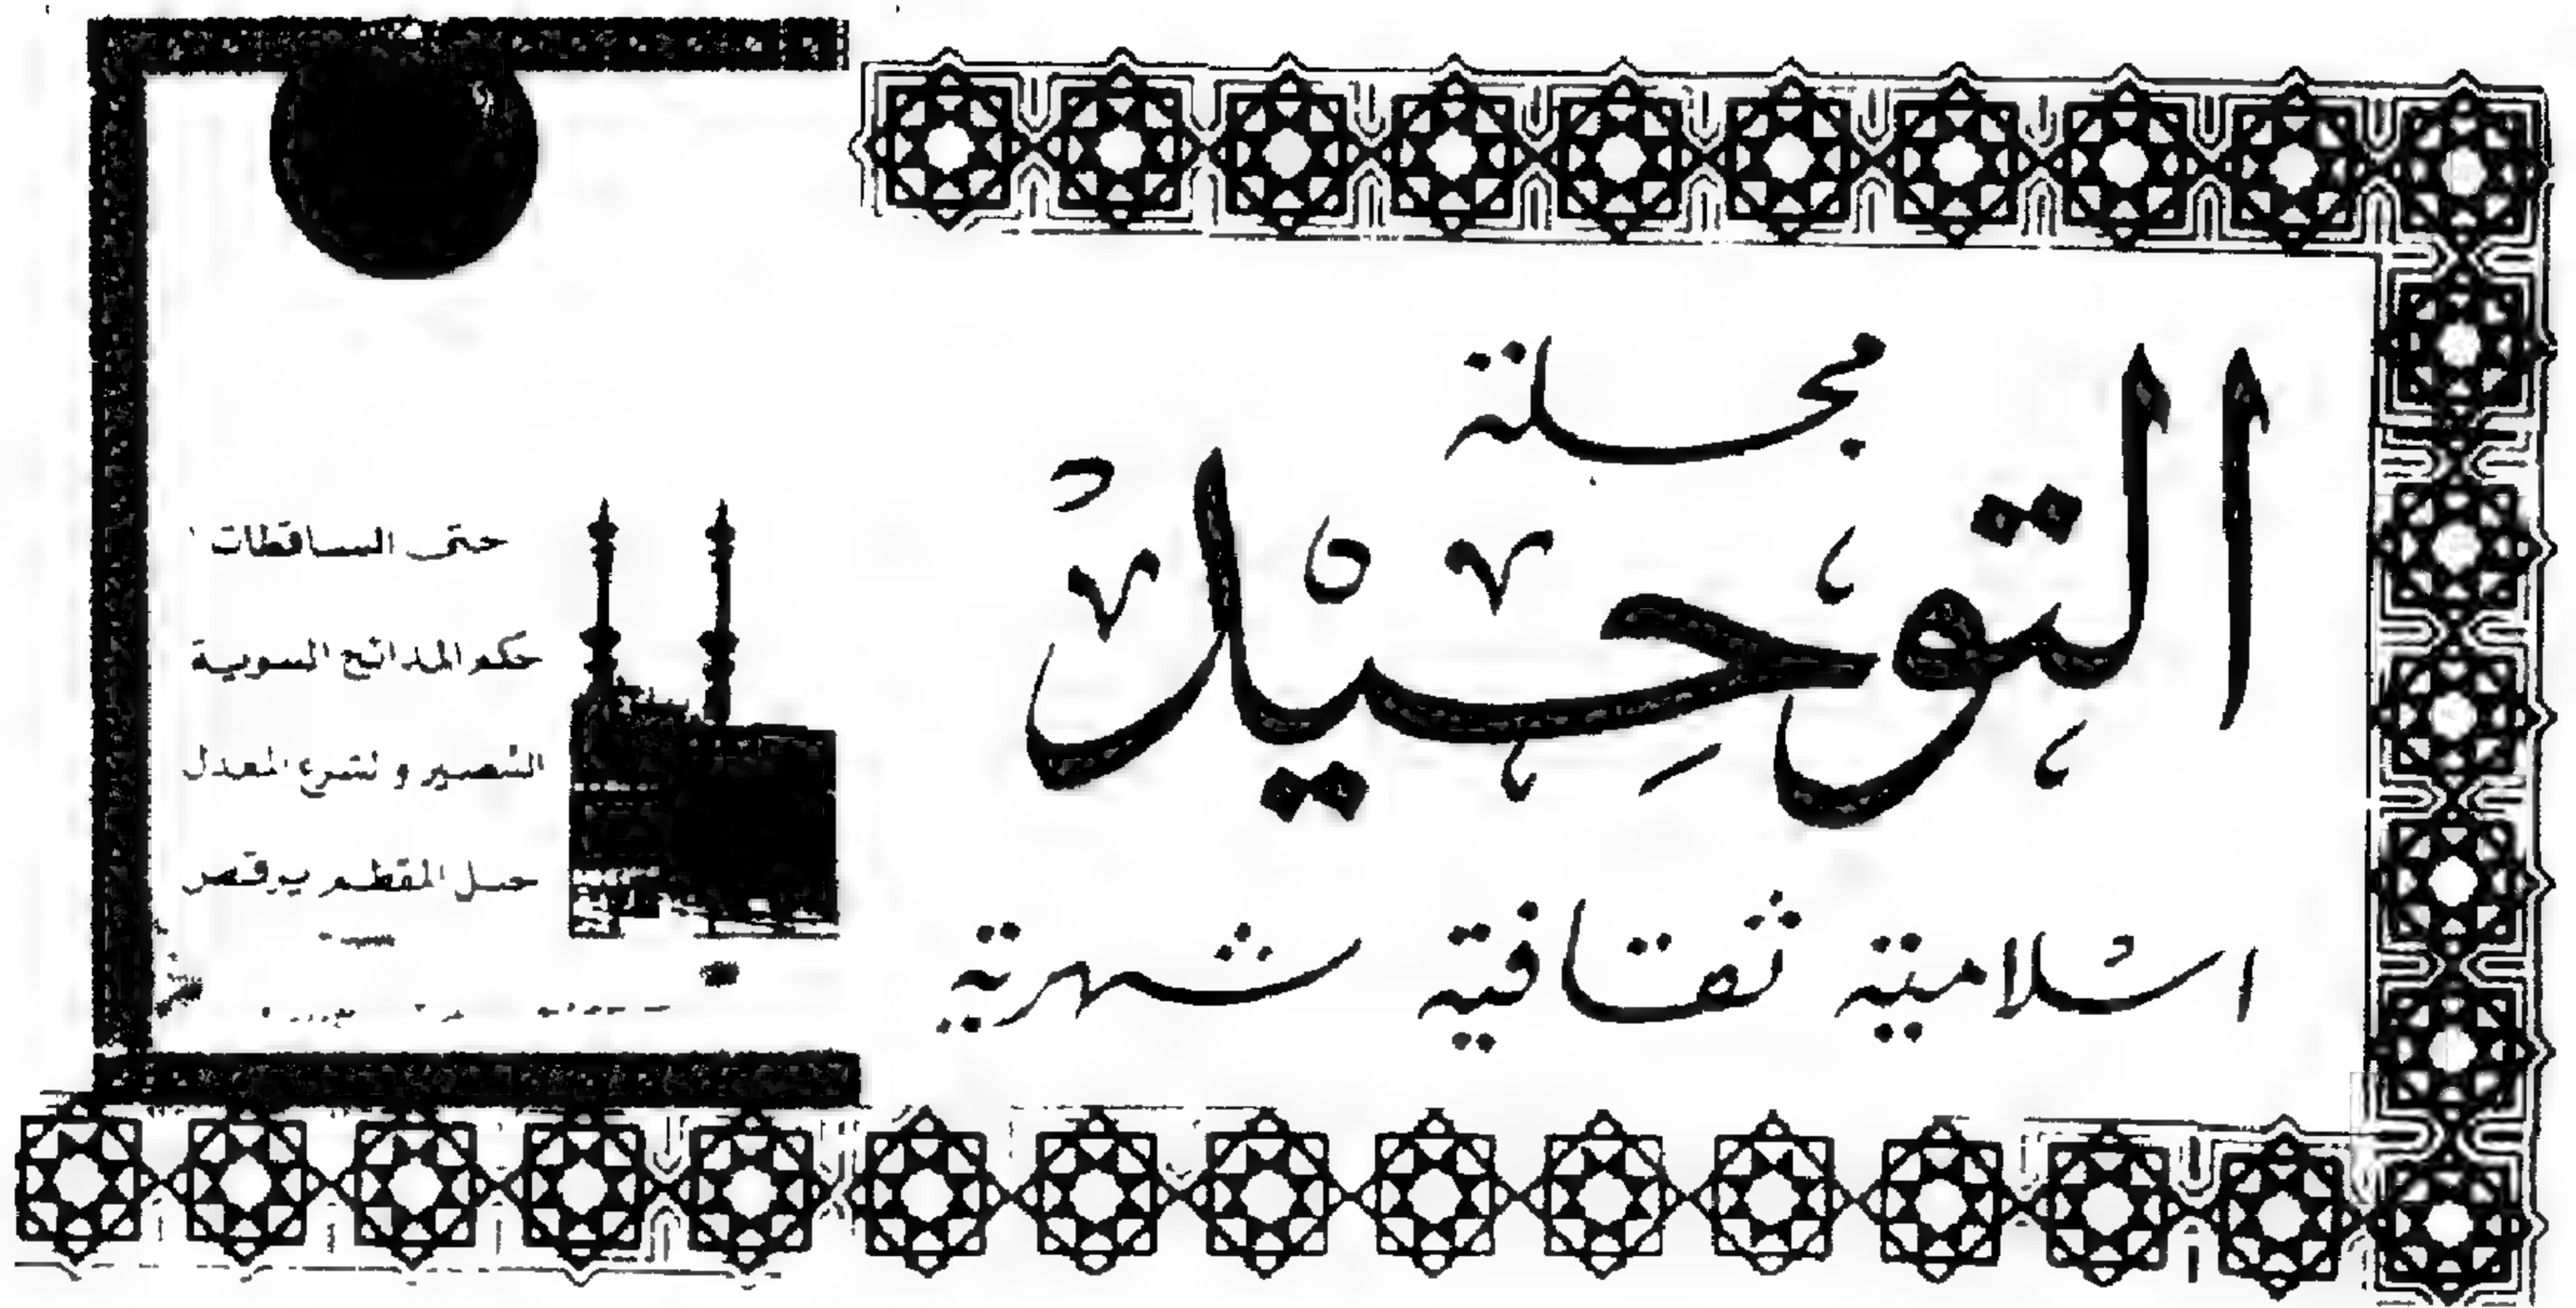 مجلة
التوحيد
اسلامية ثقافية شهرية
حتى الساقطات
حكم المدائح النبوية
التصير و لشرع المعدل
حبل المقطم يرقص